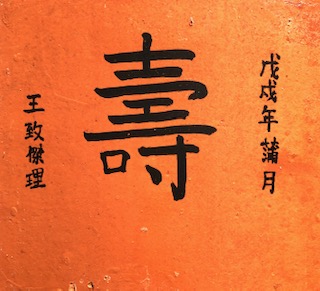 戊戌年蒲月
壽
王致傑理